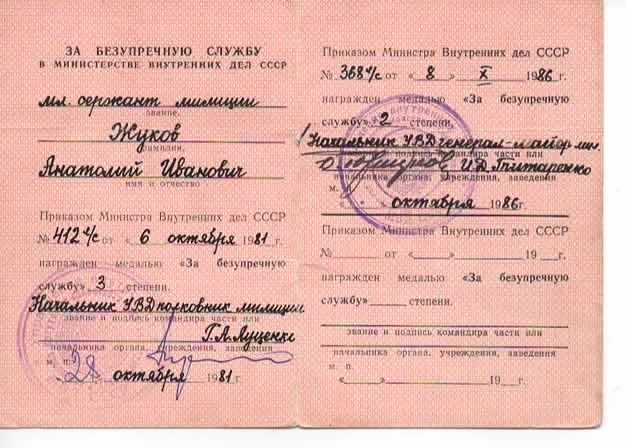 ЗА БЕЗУПРЕЧНУЮ СЛУЖБУ
В МИНИСТЕРСТВЕ ВНУТРЕННИХ ДЕЛ СССР
мл. сержант милиции
звание,
Жуков
фамилия,
Анатолий Иванович
имя и отчество
Приказом Министра Внутренних дел СССР
№ 412 л/с от « 6 октября 1981 г.
награжден медалью «За безупречную
службу» 3 степени.
Начальник УВД полковник милиции
звание и подпись командира части или
Г.А. Луценко
начальника органа, учреждения, заведения
м. п.
28 октября 1981 г.
Приказом Министра Внутренних дел СССР
№ 368 л/с от « 8 » X 1986 г.
награжден медалью «За безупречную
службу» 2 степени.
Начальник УВД генерал-майор мил.
подпись командира части или
И.Д. Гитаренко
начальника органа, учреждения, заведения
м. п.
октября 1986 г.
Приказом Министра Внутренних дел СССР
№ от « » 19 г.
награжден медалью «За безупречную
службу» степени.
звание и подпись командира части или
начальника органа, учреждения, заведения
м. п.
« » 19 г.